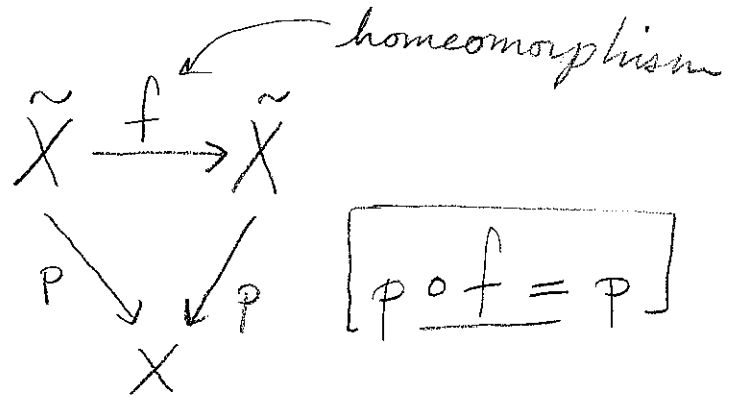 homeomorphism
X̃ f X̃
p p [p o f = p]
X